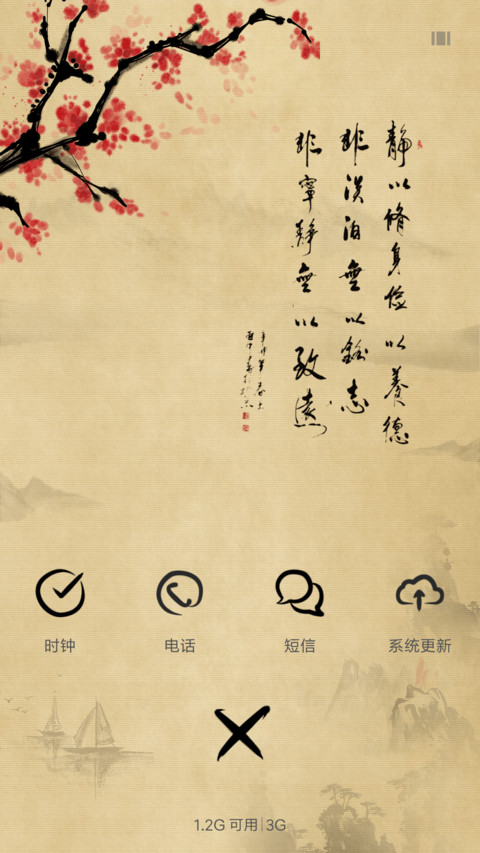 静以脩身儉以養德
非淡泊無以明志
非寧静無以致遠
时钟
电话
短信
系统更新
1.2G 可用|3G